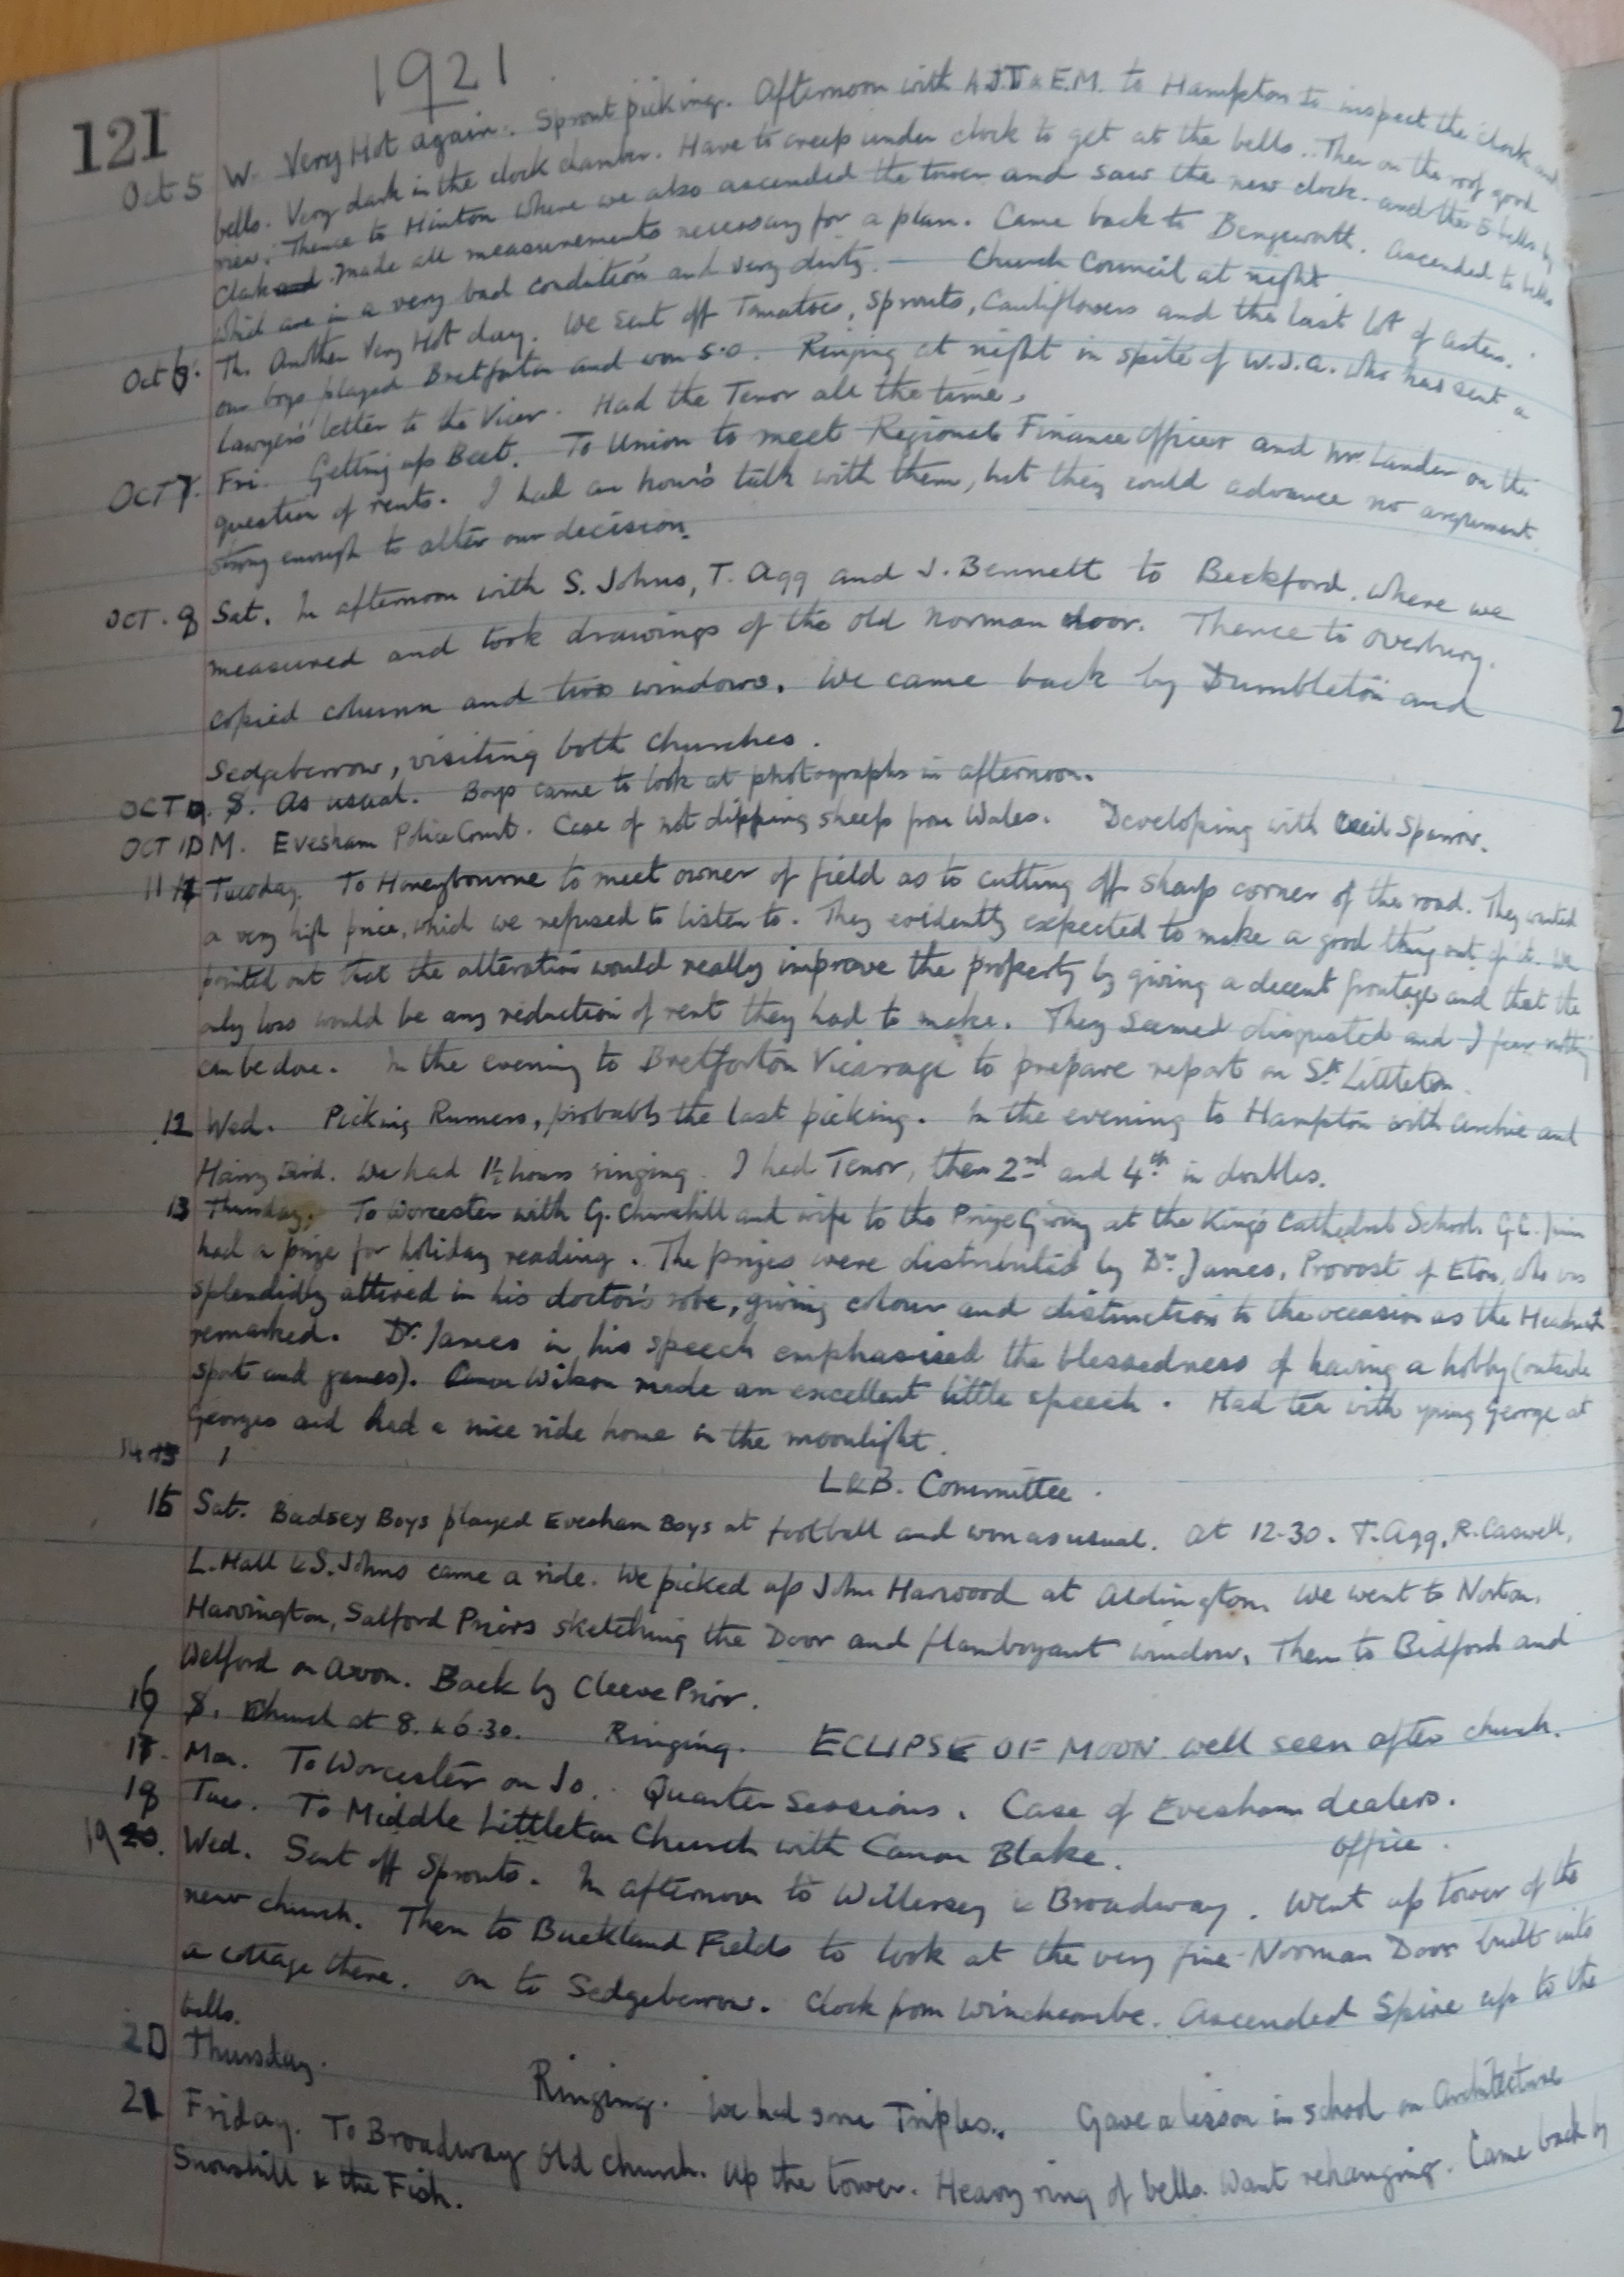 1921
121
Oct 5 W. Very Hot again. Sprout picking. Afternoon with A.J.T. & E.M. to Hampton to inspect the clock and
bells. Very dark in the clock chamber. Have to creep under clock to get at the bells. Then on the roof good
view. Thence to Hinton where we also ascended the tower and saw the new clock and the 5 bells by
Clark. Made all measurements necessary for a plan. Came back to Bengeworth. Ascended to bells
which are in a very bad condition and very dirty. — Church Council at night
Oct 6. Th. Another Very Hot day. We sent off Tomatoes, sprouts, Cauliflowers and the last lot of asters.
our boys played Bretforton and won 5.0. Ringing at night in spite of W.J.A. who has sent a
Lawyer's letter to the Vicar. Had the Tenor all the time.
OCT 7. Fri. Getting up Beet. To Union to meet Regional Finance Officer and Mr. Lander on the
question of rents. I had an hour's talk with them, but they could advance no argument
strong enough to alter our decision.
OCT. 8 Sat. In afternoon with S. Johns, T. Agg and J. Bennett to Beckford, where we
measured and took drawings of the old Norman door. Thence to Overbury.
copied column and two windows. We came back by Dumbleton and
Sedgeberrow, visiting both churches.
OCT 9. S. As usual. Boys came to look at photographs in afternoon.
OCT 10 M. Evesham Police Court. Case of not dipping sheep from Wales. Developing with Cecil Sparrow.
11 Tuesday. To Honeybourne to meet owner of field as to cutting off sharp corner of the road. They wanted
a very high price, which we refused to listen to. They evidently expected to make a good thing out of it. We
pointed out that the alteration would really improve the property by giving a decent frontage and that the
only loss would be any reduction of rent they had to make. They seemed disgusted and I fear nothing
can be done. In the evening to Bretforton Vicarage to prepare report on Sth Littleton.
12 Wed. Picking Runners, probably the last picking. In the evening to Hampton with Archie and
Harry Bird. We had 1½ hours ringing. I had Tenor, then 2nd and 4th in doubles.
13 Thursday. To Worcester with G. Churchill and wife to the Prize Giving at the King's Cathedral School. G.C. Junr
had a prize for holiday reading. The prizes were distributed by Dr. James, Provost of Eton, who was
splendidly attired in his doctor's robe, giving colour and distinction to the occasion as the Headmastr
remarked. Dr. James in his speech emphasised the blessedness of having a hobby (outside
sport and games). Canon Wilson made an excellent little speech. Had tea with young George at
Georges and had a nice ride home in the moonlight.
14
L&B. Committee.
15 Sat. Badsey Boys played Evesham Boys at football and won as usual. At 12-30. T. Agg, R. Caswell,
L. Hall & S. Johns came a ride. We picked up John Harwood at Aldington. We went to Norton,
Harvington, Salford Priors sketching the Door and flamboyant window. Then to Bidford and
Welford on Avon. Back by Cleeve Prior.
16 S. Church at 8. & 6.30. Ringing. ECLIPSE OF MOON well seen after church.
17. Mon. To Worcester on Jo. Quarter Sessions. Case of Evesham dealers.
18 Tues. To Middle Littleton Church with Canon Blake. Office.
19 Wed. Sent off Sprouts. In afternoon to Willersey & Broadway. Went up tower of the
new church. Then to Buckland Fields to look at the very fine Norman Door built into
a cottage there. On to Sedgeberrow. Clock from Winchcombe. Ascended Spire up to the
bells.
20 Thursday. Ringing. We had some Triples. Gave a lesson in school on Architecture
21 Friday. To Broadway Old church. Up the tower. Heavy ring of bells. Want rehanging. Came back by
Snowshill & the Fish.